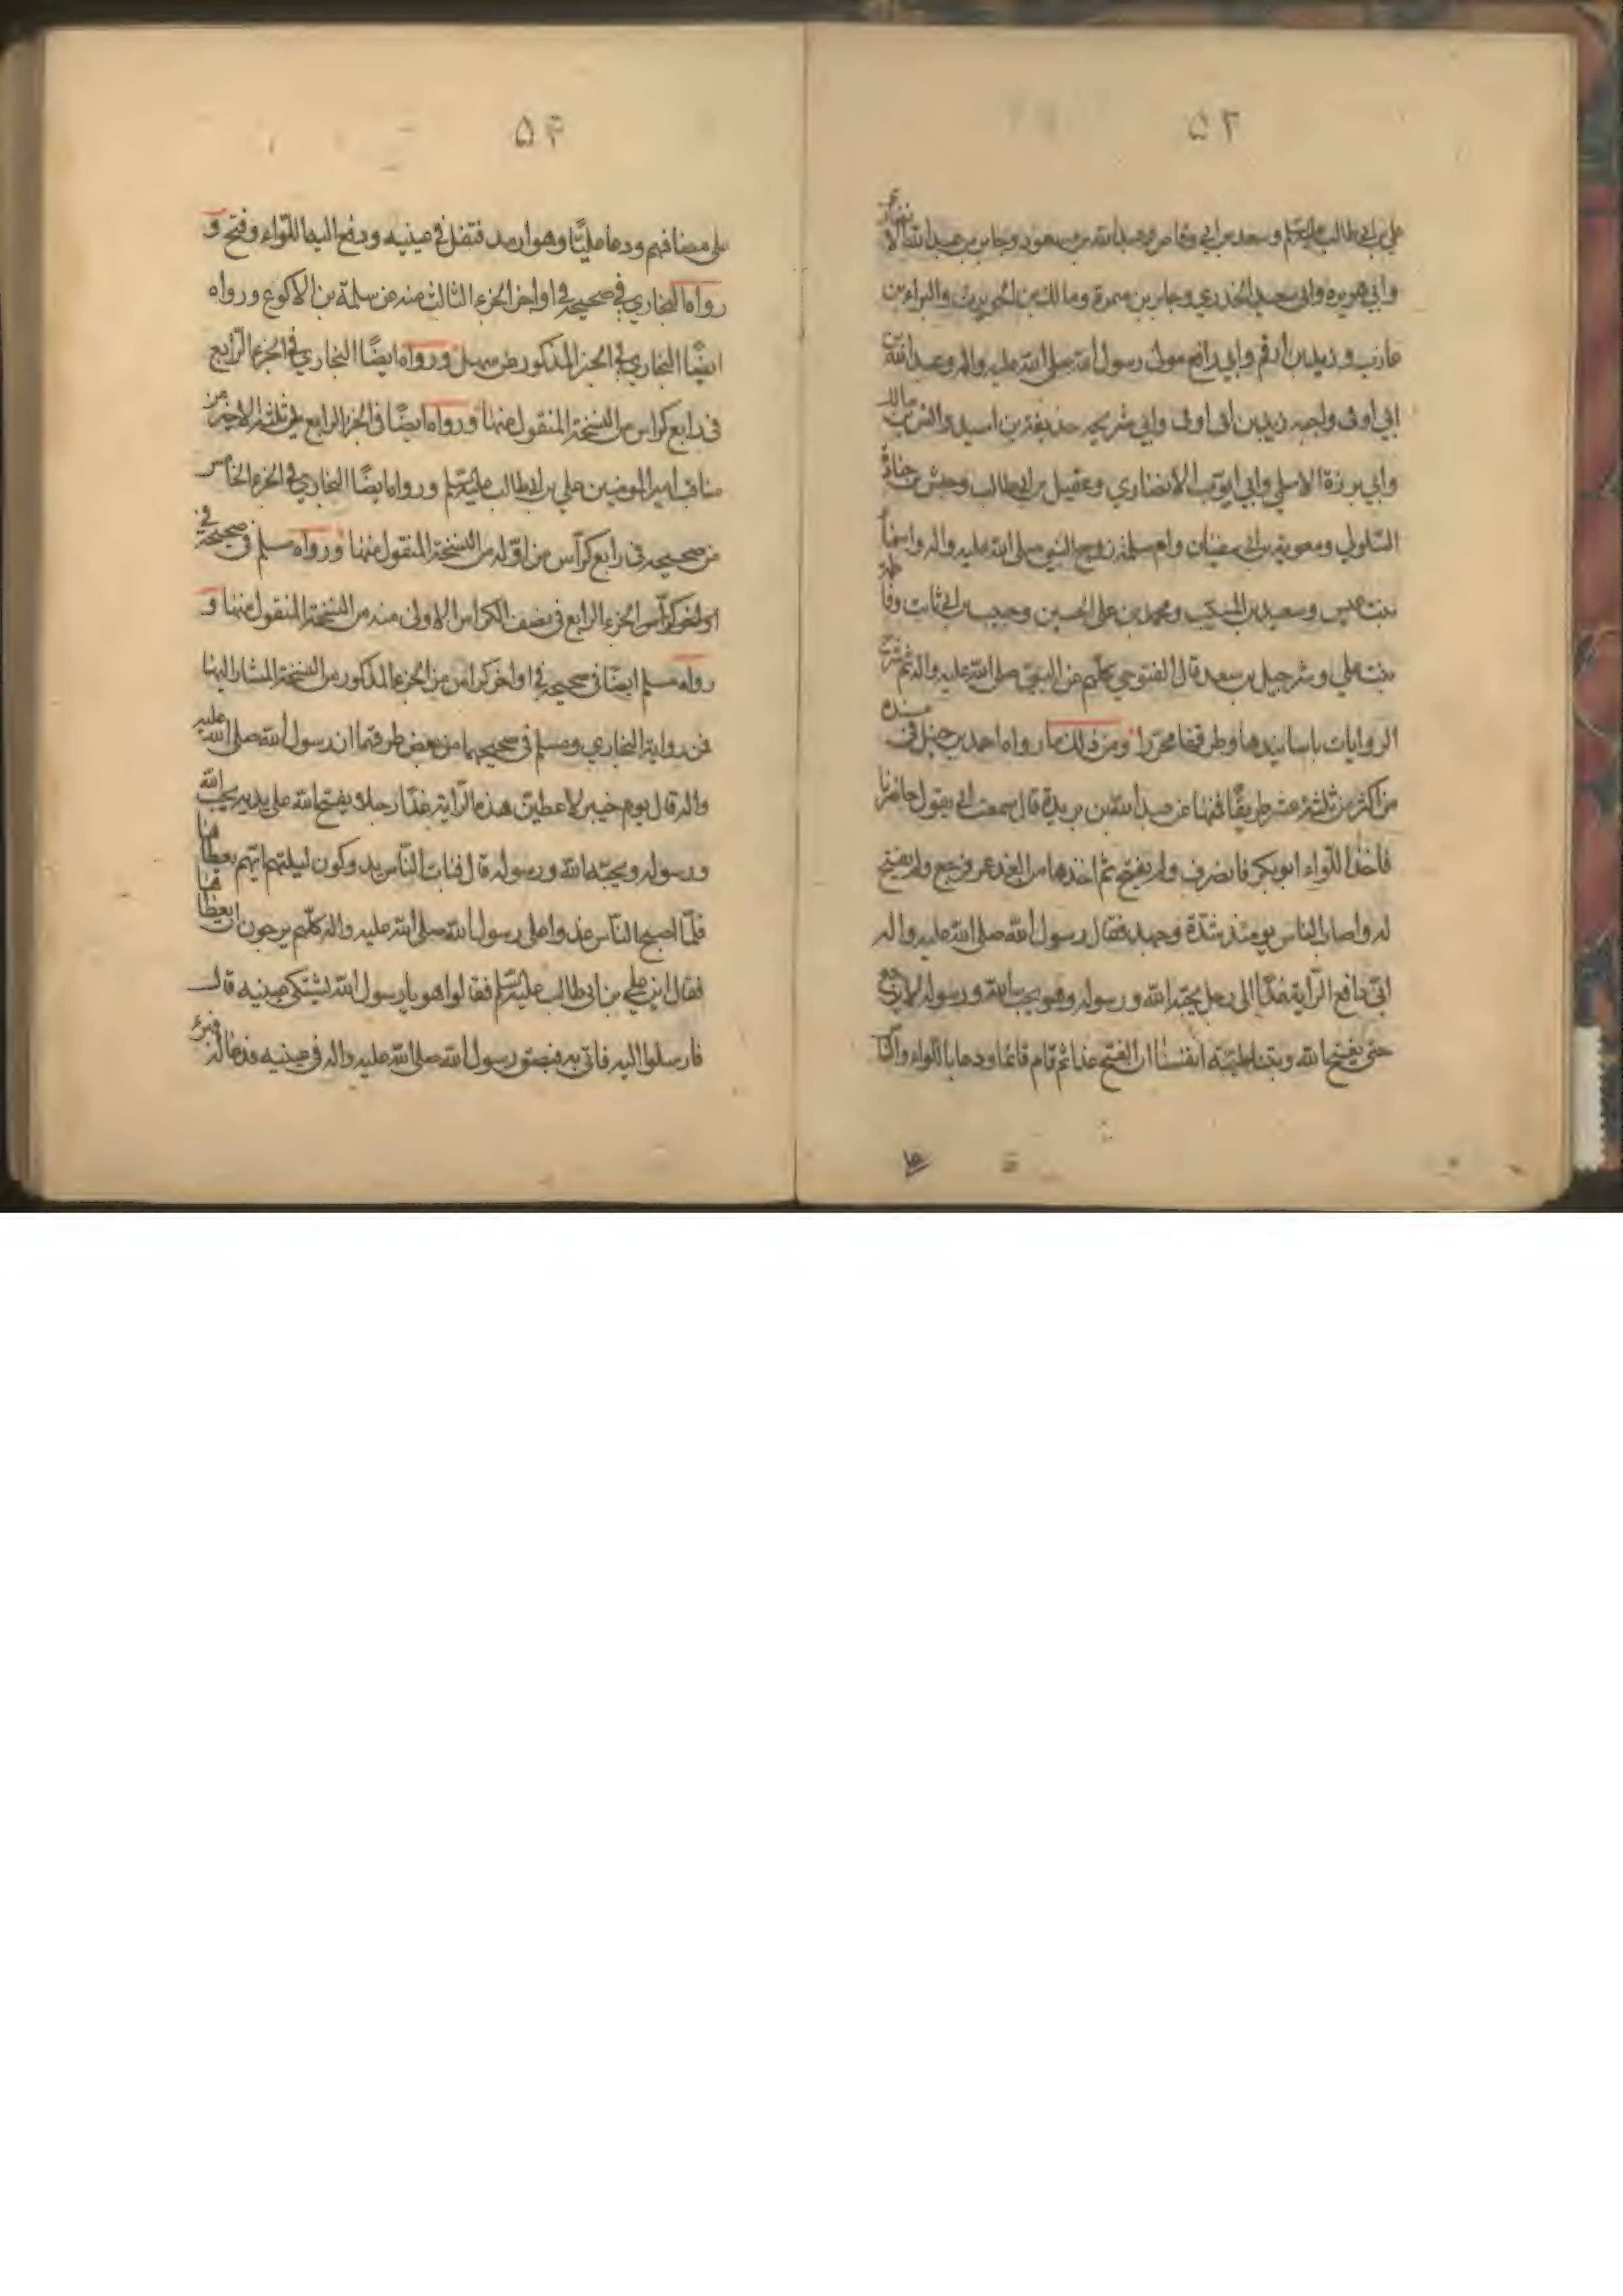 ۵۳
علي بن ابي طالب عليه السلم وسعد بن ابي وقاص وعبد الله بن مسعود وجابر بن عبد الله الانصاري
وابي هريره وابي سعيد الخدري وجابر بن سمرة ومالك بن الحويرث والبراء بن
عازب وزيد بن ارقم وابي رافع مولى رسول الله صلى الله عليه واله وعبد الله بن
ابي اوفى واخيه زيد بن ابي اوفى وابي شريحه حذيفة بن اسيد وانس بن مالك
وابي برزة الاسلمي وابي ايوب الأنصاري وعقيل بن ابيطالب وحبشي بن جنادة
السلولي ومعوية بن ابي سفيان وام سلمة زوج النبي صلى الله عليه واله واسماء
بنت عميس وسعيد بن المسيب ومحمد بن علي الحسين وحبيب بن ابي ثابت وفاطمة
بنت علي وشرحبيل بن سعد قال التنوخي كلهم عن النبي صلى الله عليه واله ثم شرح
الروايات باسانيدها وطرقها محررا ومن ذلك ما رواه احمد بن حنبل في مسنده
من اكثر من ثلثة عشر طريقا فمنها عن عبد الله بن بريدة قال سمعت ابي يقول حاصرنا
فاخذ اللواء ابو بكر فانصرف ولم يفتح ثم اخذها من الغد عمر فرجع ولم يفتح
له واصاب الناس يومئذ شدة وجهد فقال رسول الله صلى الله عليه واله
اني دافع الراية غدا الى رجل يحبه الله ورسوله وهو يحب الله ورسوله لا يرجع
حتى يفتح الله وبتنا طيبة انفسنا ان الفتح غدا ثم قام قائما ودعا باللواء والناس
۵۴
على مصافهم ودعا عليا وهو ارمد فتفل في عينيه ودفع اليها اللواء وفتح و
رواه البخاري في صحيحه في اواخر الجزء الثالث منه عن سلمة بن الاكوع ورواه
ايضا البخاري في الجزء المذكور عن سهيل ورواه ايضا البخاري في الجزء الرابع
في رابع كراس من النسخة المنقول منها ورواه ايضا في الجزء الرابع في ثلثه الاخير من
مناقب امير المومنين علي بن ابيطالب عليه السلم ورواه ايضا البخاري في الجزء الخامس
من صحيحه في رابع كراس من اوله من النسخة المنقول منها ورواه مسلم في صحيحه في
اواخر كراس الجزء الرابع في نصف الكراس الاولى منه من النسخة المنقول منها و
رواه مسلم ايضا في صحيحه في اواخر كراس من الجزء المذكور من النسخة المشار اليها
فمن رواية البخاري ومسلم في صحيحهما من بعض طرقهما ان رسول الله صلى الله عليه
واله قال يوم خيبر لاعطين هذه الراية غدا رجلا يفتح الله على يديه يحب الله
ورسوله ويحبه الله ورسوله قال فبات الناس يدوكون ليلتهم ايهم يعطاها
فلما اصبح الناس غدوا على رسول الله صلى الله عليه واله كلهم يرجون ان يعطاها
فقال اين علي بن ابيطالب عليه السلم فقالوا هو يا رسول الله يشتكي عينيه قال
فارسلوا اليه فاتي به فبصق رسول الله صلى الله عليه واله في عينيه ودعا له فبرء